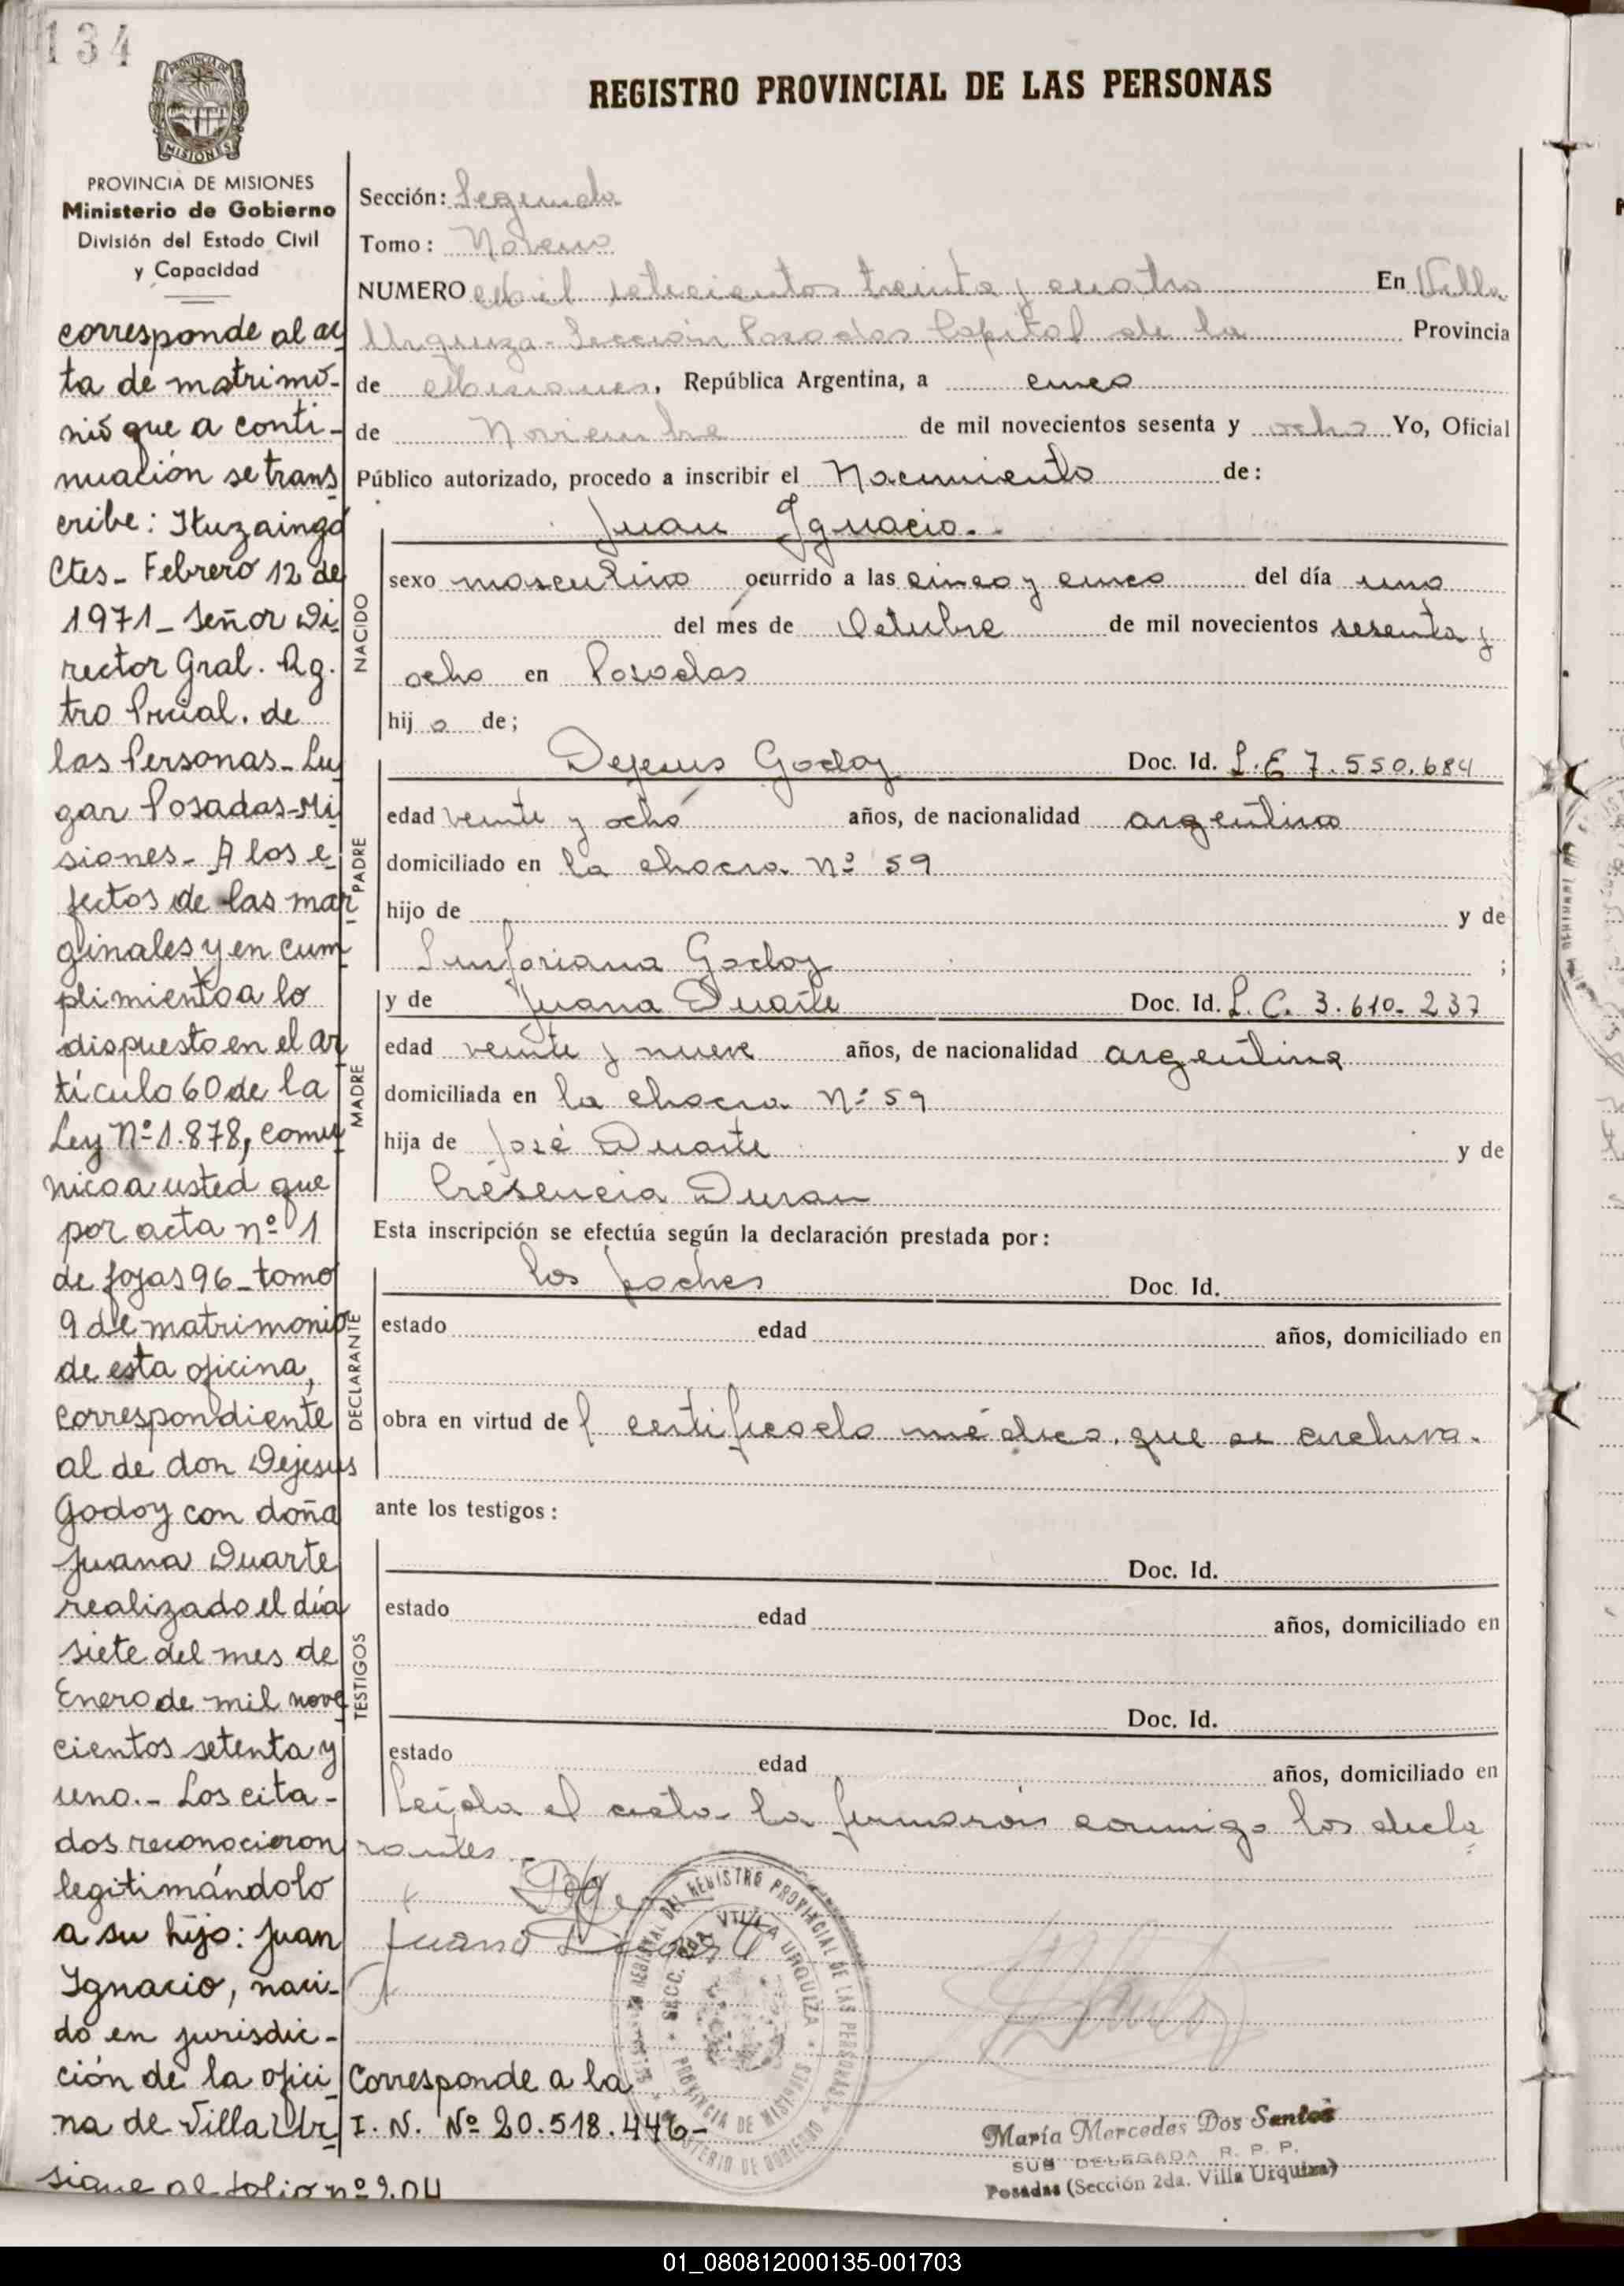 134
REGISTRO PROVINCIAL DE LAS PERSONAS
PROVINCIA DE MISIONES
Ministerio de Gobierno
División del Estado Civil
y Capacidad
corresponde al ac
ta de matrimo-
nio que a conti-
nuación se trans
cribe: Ituzaingó
Ctes- Febrero 12 de
1971- Señor Di
rector Gral. Rg.
tro Prcial. de
las Personas- Lu
gar Posadas-Mi
siones- A los e
fectos de las mar
ginales y en cum
plimiento a lo
dispuesto en el ar
tículo 60 de la
Ley Nº 1.878, comu
nico a usted que
por acta nº 1
de fojas 96- tomo
9 de matrimonio
de esta oficina,
correspondiente
al de don Dejesus
Godoy con doña
Juana Duarte
realizado el día
siete del mes de
Enero de mil nove
cientos setenta y
uno.- Los cita-
dos reconocieron
legitimándolo
a su hijo: Juan
Ignacio, naci-
do en jurisdic-
ción de la ofici
na de Villa Ur
sigue al folio nº 204
Sección: Segunda
Tomo: Noveno
NUMERO Mil setecientos treinta y cuatro En Villa
Urquiza- Sección Posadas Capital de la Provincia
de Misiones, República Argentina, a cinco
de Noviembre de mil novecientos sesenta y ocho Yo, Oficial
Público autorizado, procedo a inscribir el Nacimiento de:
Juan Ignacio.-
NACIDO
sexo masculino ocurrido a las cinco y cinco del día uno
del mes de Octubre de mil novecientos sesenta y
ocho en Posadas
hijo de;
PADRE
Dejesus Godoy Doc. Id. L.E 7.550.684
edad veinte y ocho años, de nacionalidad argentino
domiciliado en la chacra Nº 59
hijo de y de
Sinforiana Godoy ;
MADRE
y de Juana Duarte Doc. Id. L.C. 3.610.237
edad veinte y nueve años, de nacionalidad argentina
domiciliada en la chacra Nº 59
hija de José Duarte y de
Cresencia Duran
Esta inscripción se efectúa según la declaración prestada por:
DECLARANTE
los padres Doc. Id.
estado edad años, domiciliado en
obra en virtud del certificado médico que se archiva.
ante los testigos:
TESTIGOS
Doc. Id.
estado edad años, domiciliado en
Doc. Id.
estado edad años, domiciliado en
Leída el acta la firmaron conmigo los decla
rantes.-
Juana Duarte
Corresponde a la
I. N. Nº 20.518.446-
SECC. 2da VILLA URQUIZA
PROVINCIA DE MISIONES
María Mercedes Dos Santos
SUB DELEGADA R. P. P.
Posadas (Sección 2da. Villa Urquiza)
01_080812000135-001703